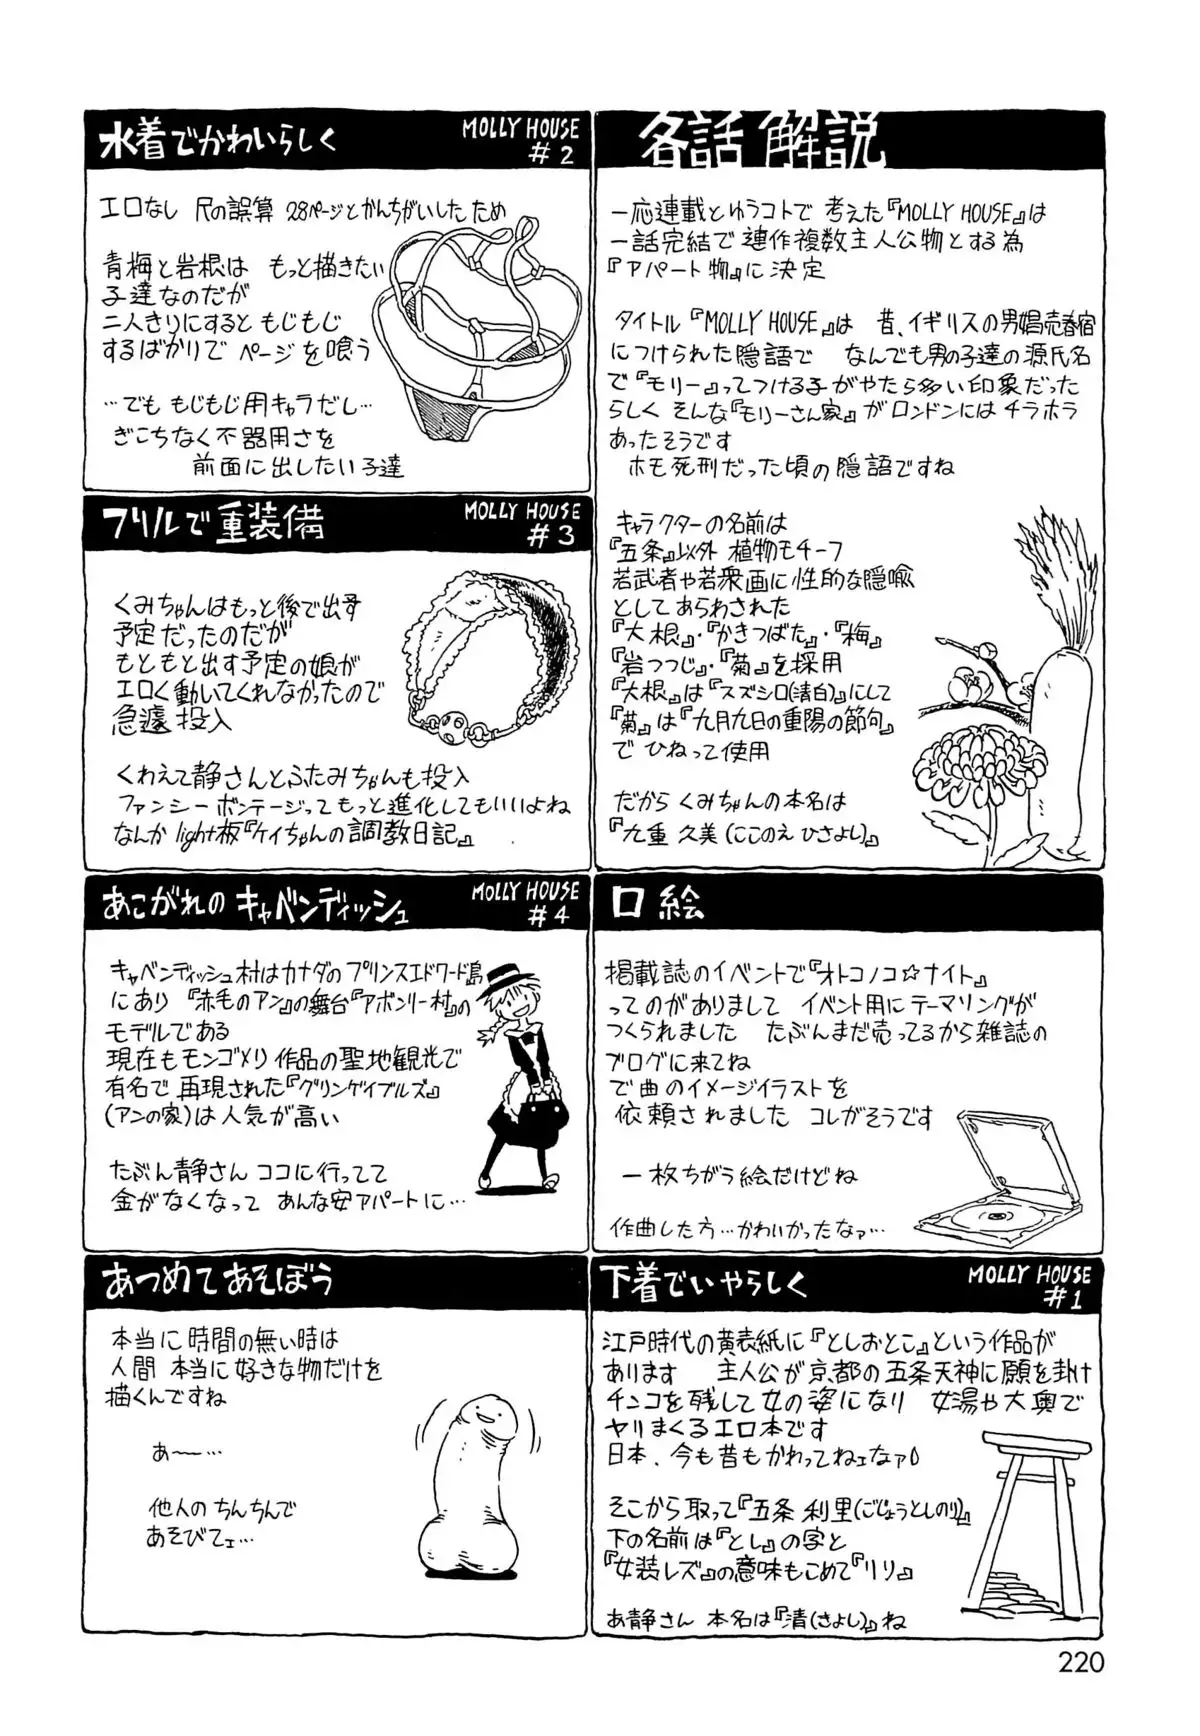 各話解説
一応連載とゆうコトで 考えた『MOLLY HOUSE』は
一話完結で 連作複数主人公物とする為
『アパート物』に決定
タイトル『MOLLY HOUSE』は 昔、イギリスの男娼売春宿
につけられた隠語で なんでも男の子達の源氏名
で『モリー』ってつける子がやたら多い印象だった
らしく そんな『モリーさん家』がロンドンにはチラホラ
あったそうです
ホモ死刑だった頃の隠語ですね
キャラクターの名前は
『五条』以外 植物モチーフ
若武者や若衆画に性的な隠喩
としてあらわされた
『大根』・『かきつばた』・『梅』
『岩つつじ』・『菊』を採用
『大根』は『スズシロ(清白)』にして
『菊』は『九月九日の重陽の節句』
で ひねって使用
だから くみちゃんの本名は
『九重 久美(ここのえ ひさよし)』
口絵
掲載誌のイベントで『オトコノコ☆ナイト』
ってのがありまして イベント用にテーマソングが
つくられました たぶんまだ売ってるから雑誌の
ブログに来てね
で曲のイメージイラストを
依頼されました コレがそうです
一枚ちがう絵だけどね
作曲した方…かわいかったなァ…
下着でいやらしく MOLLY HOUSE #1
江戸時代の黄表紙に『としおとこ』という作品が
あります 主人公が京都の五条天神に願を掛け
チンコを残して女の姿になり 女湯や大奥で
ヤリまくるエロ本です
日本、今も昔もかわってねェなァ
そこから取って『五条 利里(ごじょうとしのり)』
下の名前は『とし』の字と
『女装レズ』の意味もこめて『リリ』
あ静さん 本名は『清(さよし)』ね
水着でかわいらしく MOLLY HOUSE #2
エロなし 尺の誤算 28ページとかんちがいしたため
青梅と岩根は もっと描きたい
子達なのだが
二人きりにすると もじもじ
するばかりで ページを喰う
…でも もじもじ用キャラだし…
ぎこちなく不器用さを
前面に出したい子達
フリルで重装備 MOLLY HOUSE #3
くみちゃんはもっと後で出す
予定だったのだが
もともと出す予定の娘が
エロく動いてくれなかったので
急遽 投入
くわえて静さんとふたみちゃんも投入
ファンシーボンテージってもっと進化してもいいよね
なんか light板『ケイちゃんの調教日記』
あこがれのキャベンディッシュ MOLLY HOUSE #4
キャベンディッシュ村はカナダのプリンスエドワード島
にあり 『赤毛のアン』の舞台『アボンリー村』の
モデルである
現在もモンゴメリ作品の聖地観光で
有名で 再現された『グリンゲイブルズ』
(アンの家)は人気が高い
たぶん静さん ココに行ってて
金がなくなって あんな安アパートに…
あつめてあそぼう
本当に時間の無い時は
人間 本当に好きな物だけを
描くんですね
あ〜…
他人のちんちんで
あそびてェ…
220